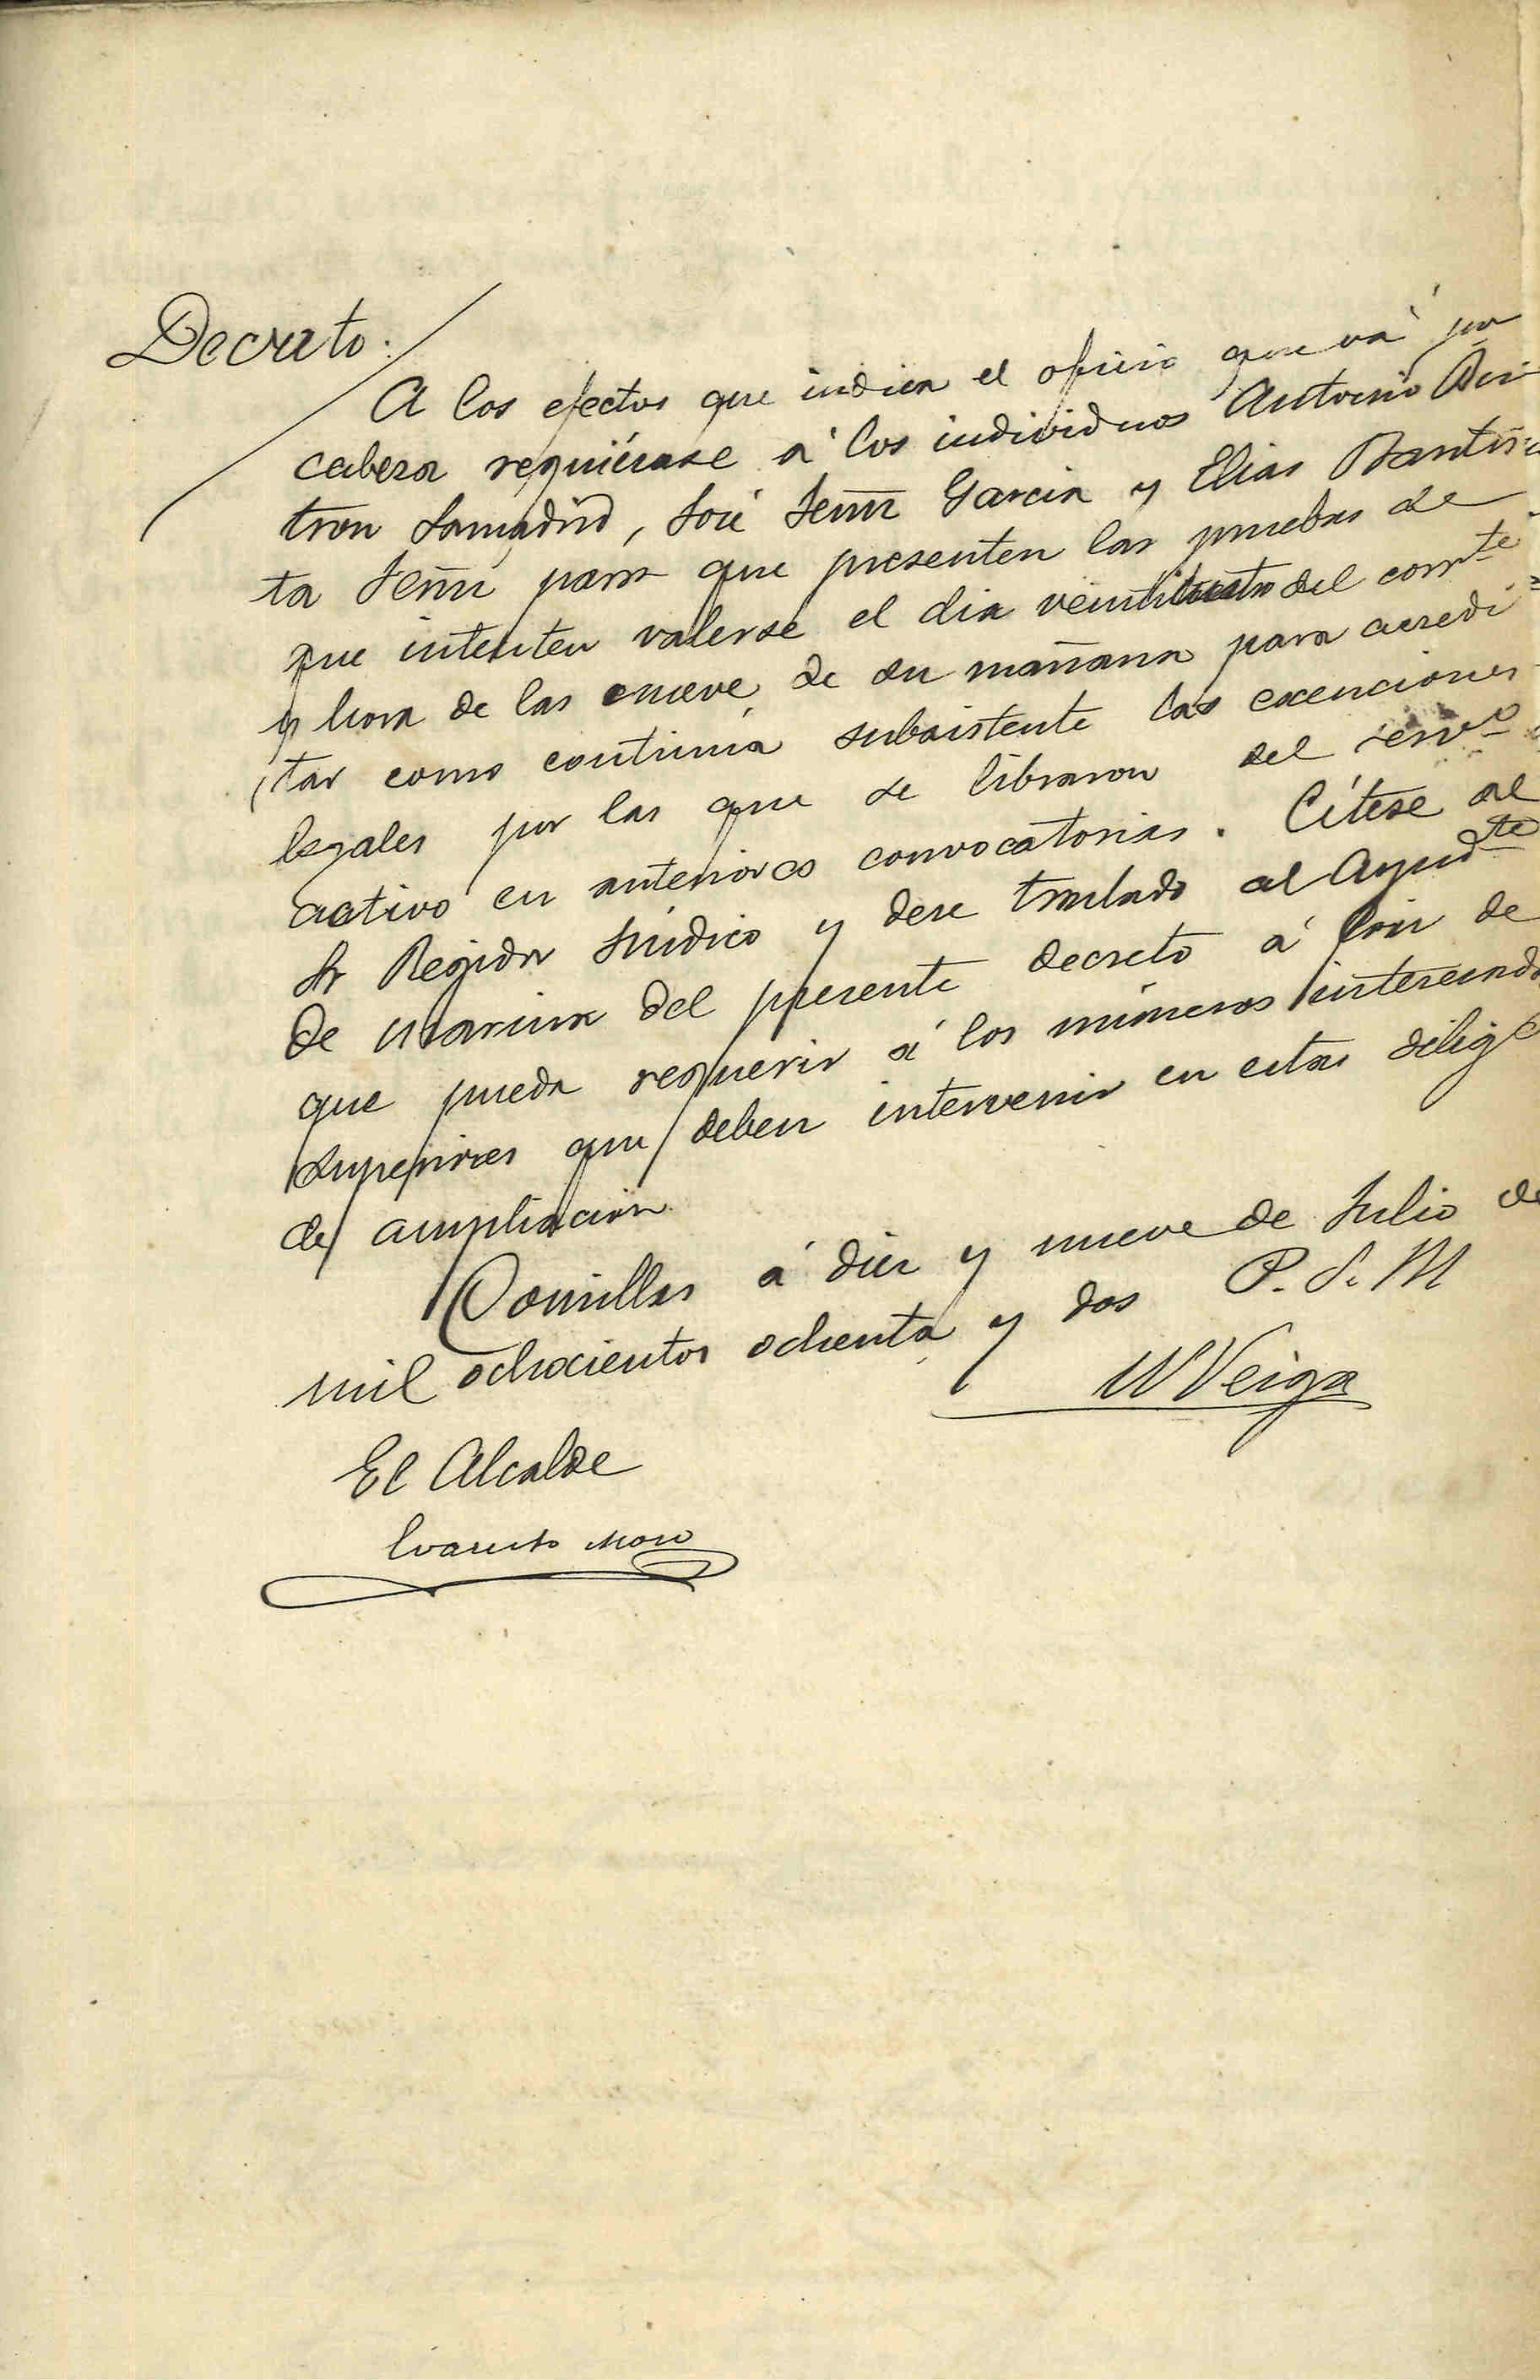 Decreto.
A los efectos que indica el oficio que vá por
cabeza requiérase á los individuos Antonio
tron Lamadrid, José García y Elias Bautis-
ta para que presenten las pruebas de
que intenten valerse el dia del corr.te
y hora de las nueve de su mañana para acredi-
tar como continúa subsistente las exenciones
legales por las que se libraron del serv.o
activo en anteriores convocatorias. Cítese al
Sr Regidor Síndico y dese traslado al Ayud.te
de Marina del presente decreto á fin de
que pueda requerir á los números interesado
superiores que deben intervenir en estas dilig.s
de ampliacion
Comillas á diez y nueve de Julio de
mil ochocientos ochenta y dos P. S. M
W Veiga
El Alcalde
Evaristo Moro